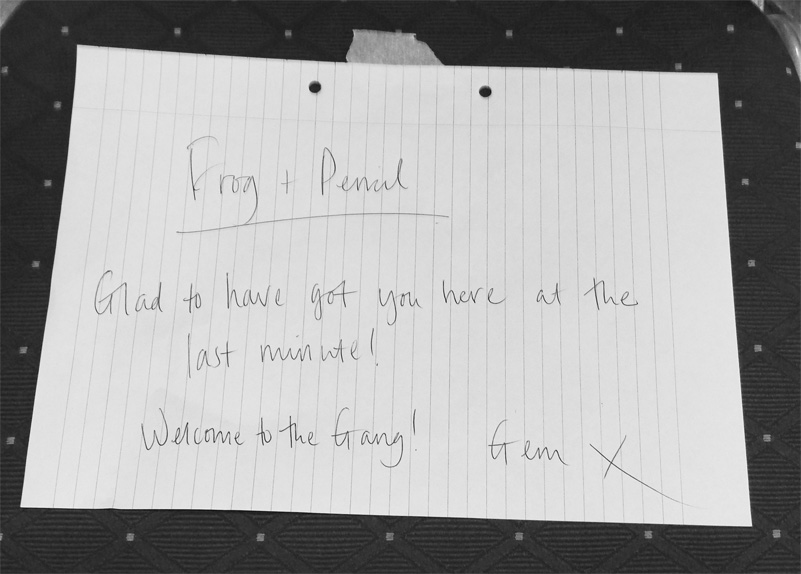 Frog + Pencil
Glad to have got you here at the
last minute!
Welcome to the Gang! Gem X